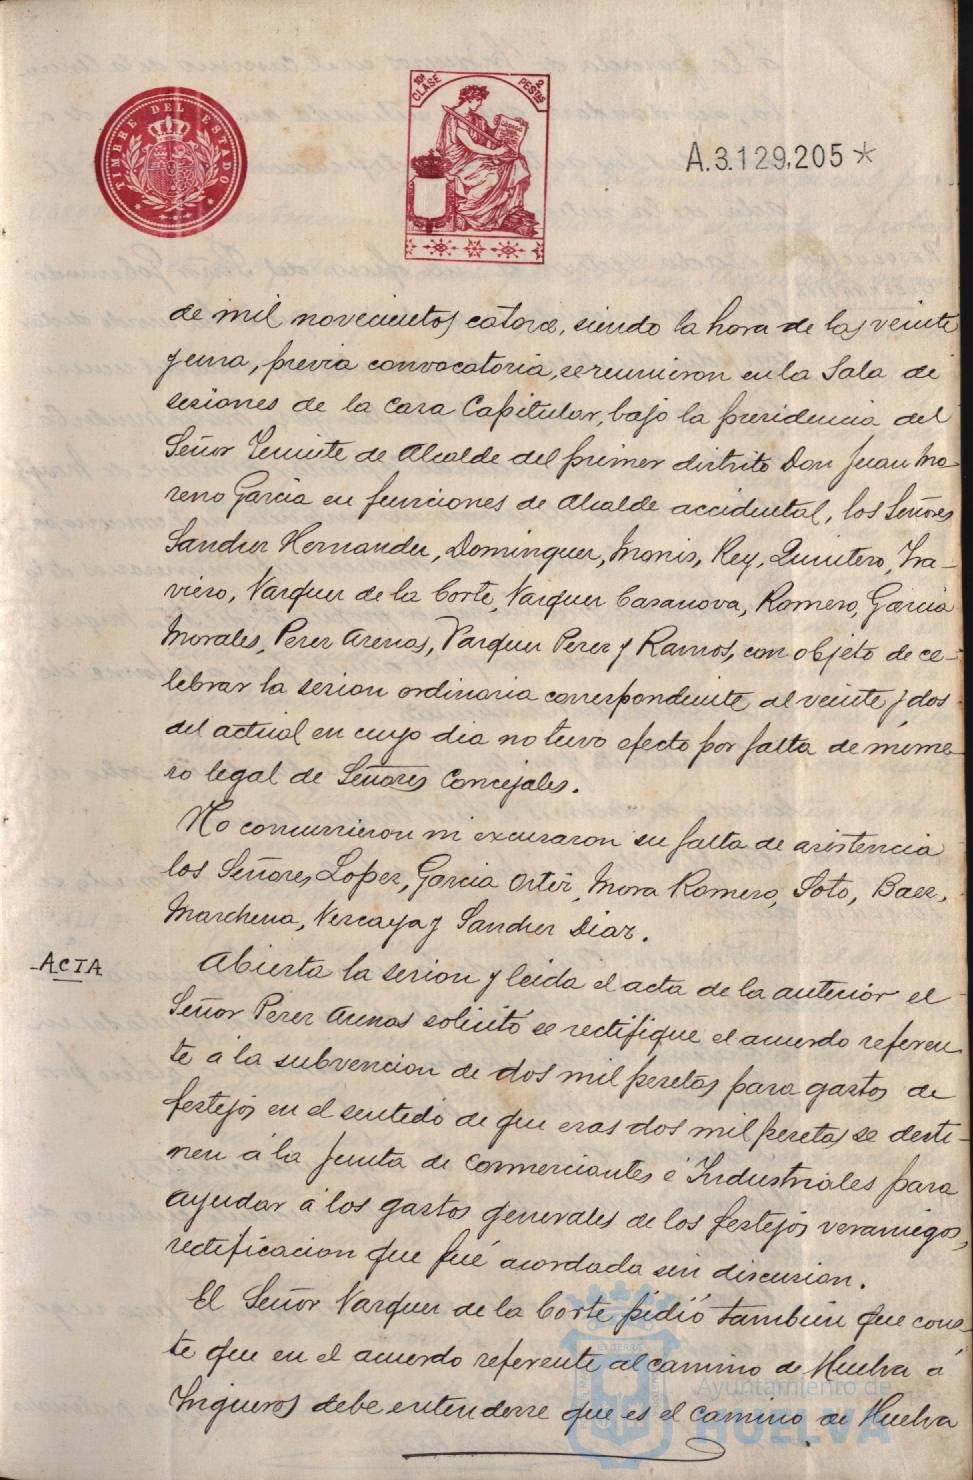 TIMBRE DEL ESTADO
10ª CLASE
2 PESTAS
A.3.129,205*
de mil novecientos catorce, siendo la hora de las veinte
y una, previa convocatoria, se reunieron en la Sala de
sesiones de la Casa Capitular, bajo la presidencia del
Señor Teniente de Alcalde del primer distrito Don Juan Mo-
reno Garcia en funciones de Alcalde accidental, los Señores
Sanchez Hernandez, Dominguez, Monis, Rey, Quintero, Tra-
vieso, Vazquez de la Corte, Vazquez Casanova, Romero, Garcia
Morales, Perez Arenas, Vazquez Perez y Ramos, con objeto de ce-
lebrar la sesion ordinaria correspondiente al veinte y dos
del actual en cuyo dia no tuvo efecto por falta de nume-
ro legal de Señores Concejales.
No concurrieron ni excusaron su falta de asistencia
los Señores Lopez, Garcia Ortiz, Mora Romero, Soto, Baez,
Marchena, Vizcaya y Sanchez Diaz.
ACTA
Abierta la sesion y leida el acta de la anterior el
Señor Perez Arenas solicitó se rectifique el acuerdo referen-
te á la subvencion de dos mil pesetas para gastos de
festejos en el sentido de que esas dos mil pesetas se desti-
nen á la Junta de Comerciantes é Industriales para
ayudar á los gastos generales de los festejos veraniegos,
rectificacion que fué acordada sin discusion.
El Señor Vazquez de la Corte pidió tambien que cons-
te que en el acuerdo referente al camino de Huelva á
Trigueros debe entenderse que es el camino de Huelva
Ayuntamiento de
HUELVA